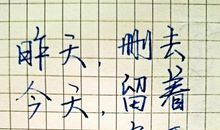 昨天，删去
今天，留着